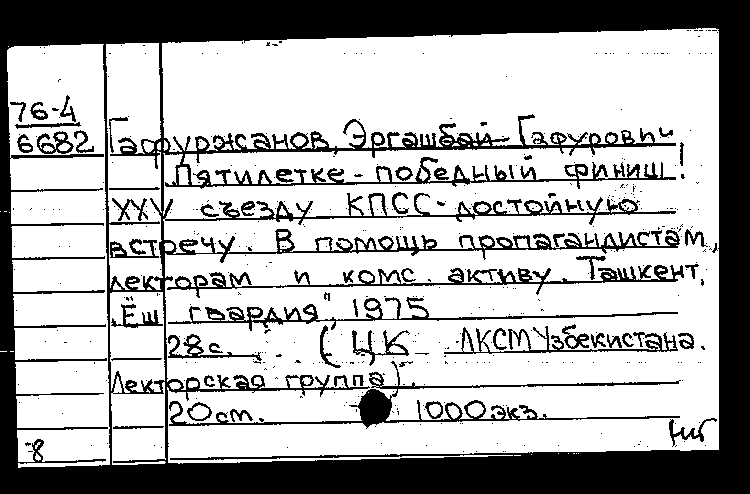 76-4
6682
Гафуржанов, Эргашбай Гафурович
Пятилетке - победный финиш!
XXV съезду КПСС - достойную
встречу. В помощь пропагандистам,
лекторам и комс. активу. Ташкент,
"Ёш гвардия", 1975
28с. (ЦК ЛКСМ Узбекистана.
Лекторская группа).
20 см. 1000 экз.
-8